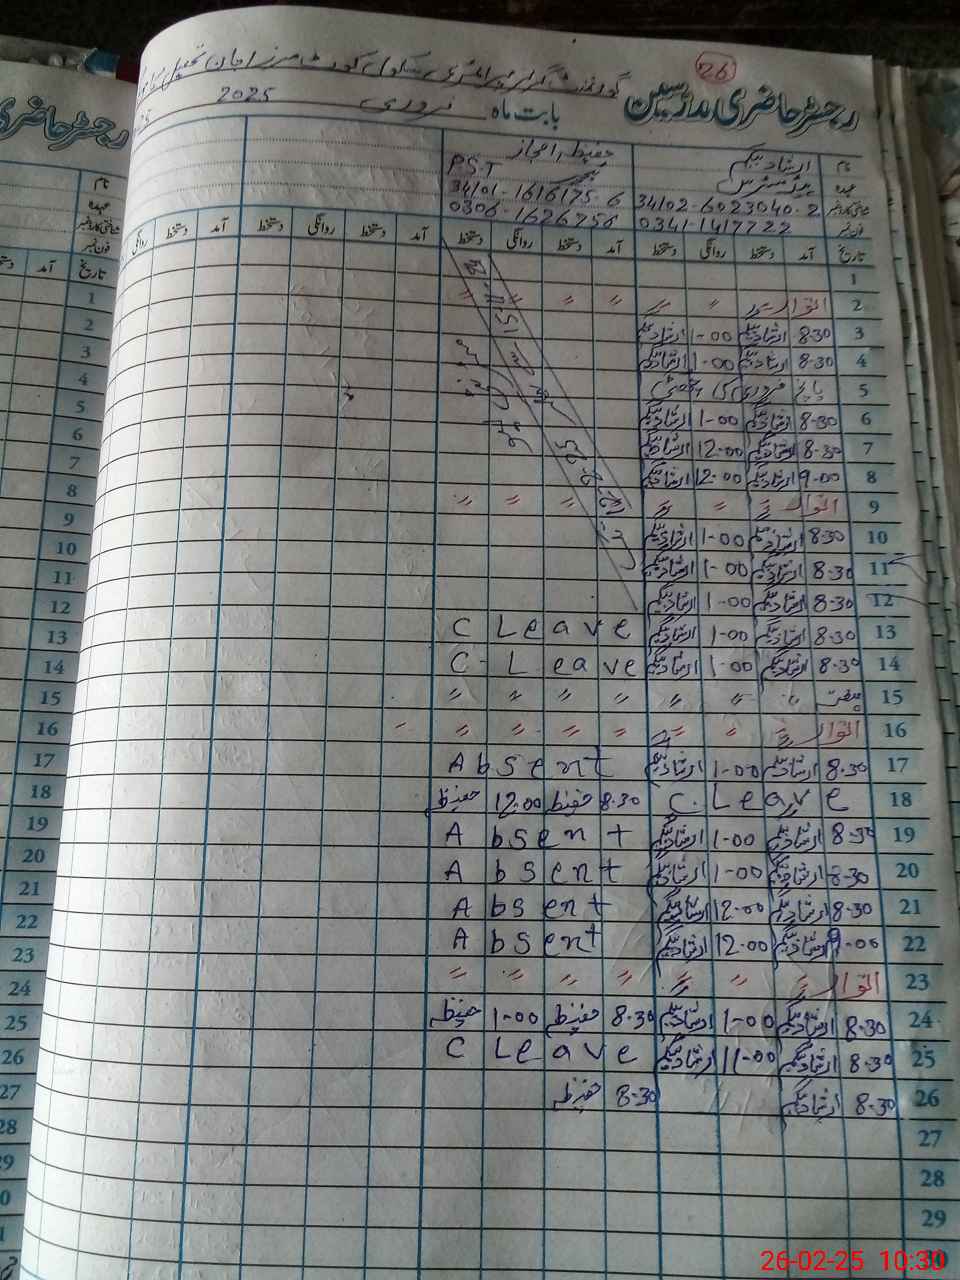 26
گورنمنٹ گرلز پرائمری سکول کوٹ مرزا جان تحصیل
رجسٹر حاضری مدرسین
بابت ماہ فروری 2025
نام ارشاد بیگم حفیظہ اعجاز
عہدہ ہیڈ مسٹرس PST
شناختی کارڈ نمبر 34102-6023040-2 34101-1616175-6
فون نمبر 0341-1417722 0306-1626256
تاریخ آمد دستخط روانگی دستخط آمد دستخط روانگی دستخط آمد دستخط روانگی دستخط آمد دستخط روانگی
1
2 اتوار " " " " " " "
3 8-30 ارشاد بیگم 1-00 ارشاد بیگم
4 8-30 ارشاد بیگم 1-00 ارشاد بیگم
5 پانچ فروری کی چھٹی
6 8-30 ارشاد بیگم 1-00 ارشاد بیگم
7 8-30 ارشاد بیگم 12-00 ارشاد بیگم
8 9-00 ارشاد بیگم 12-00 ارشاد بیگم
9 اتوار " " " " " "
10 8-30 ارشاد بیگم 1-00 ارشاد بیگم
11 8-30 ارشاد بیگم 1-00 ارشاد بیگم
12 8-30 ارشاد بیگم 1-00 ارشاد بیگم
13 8-30 ارشاد بیگم 1-00 ارشاد بیگم C Leave
14 8-30 ارشاد بیگم 1-00 ارشاد بیگم C-Leave
15 " " " " " " "
16 اتوار " " " " " " "
17 8-30 ارشاد بیگم 1-00 ارشاد بیگم Absent
18 C. Leave 8-30 حفیظہ 12-00 حفیظہ
19 8-30 ارشاد بیگم 1-00 ارشاد بیگم Absent
20 8-30 ارشاد بیگم 1-00 ارشاد بیگم Absent
21 8-30 ارشاد بیگم 12-00 ارشاد بیگم Absent
22 9-00 ارشاد بیگم 12-00 ارشاد بیگم Absent
23 اتوار " " " " " " "
24 8-30 ارشاد بیگم 1-00 ارشاد بیگم 8-30 حفیظہ 1-00 حفیظہ
25 8-30 ارشاد بیگم 11-00 ارشاد بیگم C Leave
26 8-30 ارشاد بیگم 8-30 حفیظہ
27
28
29
30
26-02-25 10:30